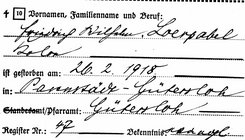 + 10 Vornamen, Familienname und Beruf:
Friedrich Wilhelm Loergabel
Kolon
ist gestorben am: 26. 2. 1918
in Pavenstädt-Gütersloh
Standesamt/Pfarramt: Gütersloh
Register Nr.: 47 Bekenntnis: